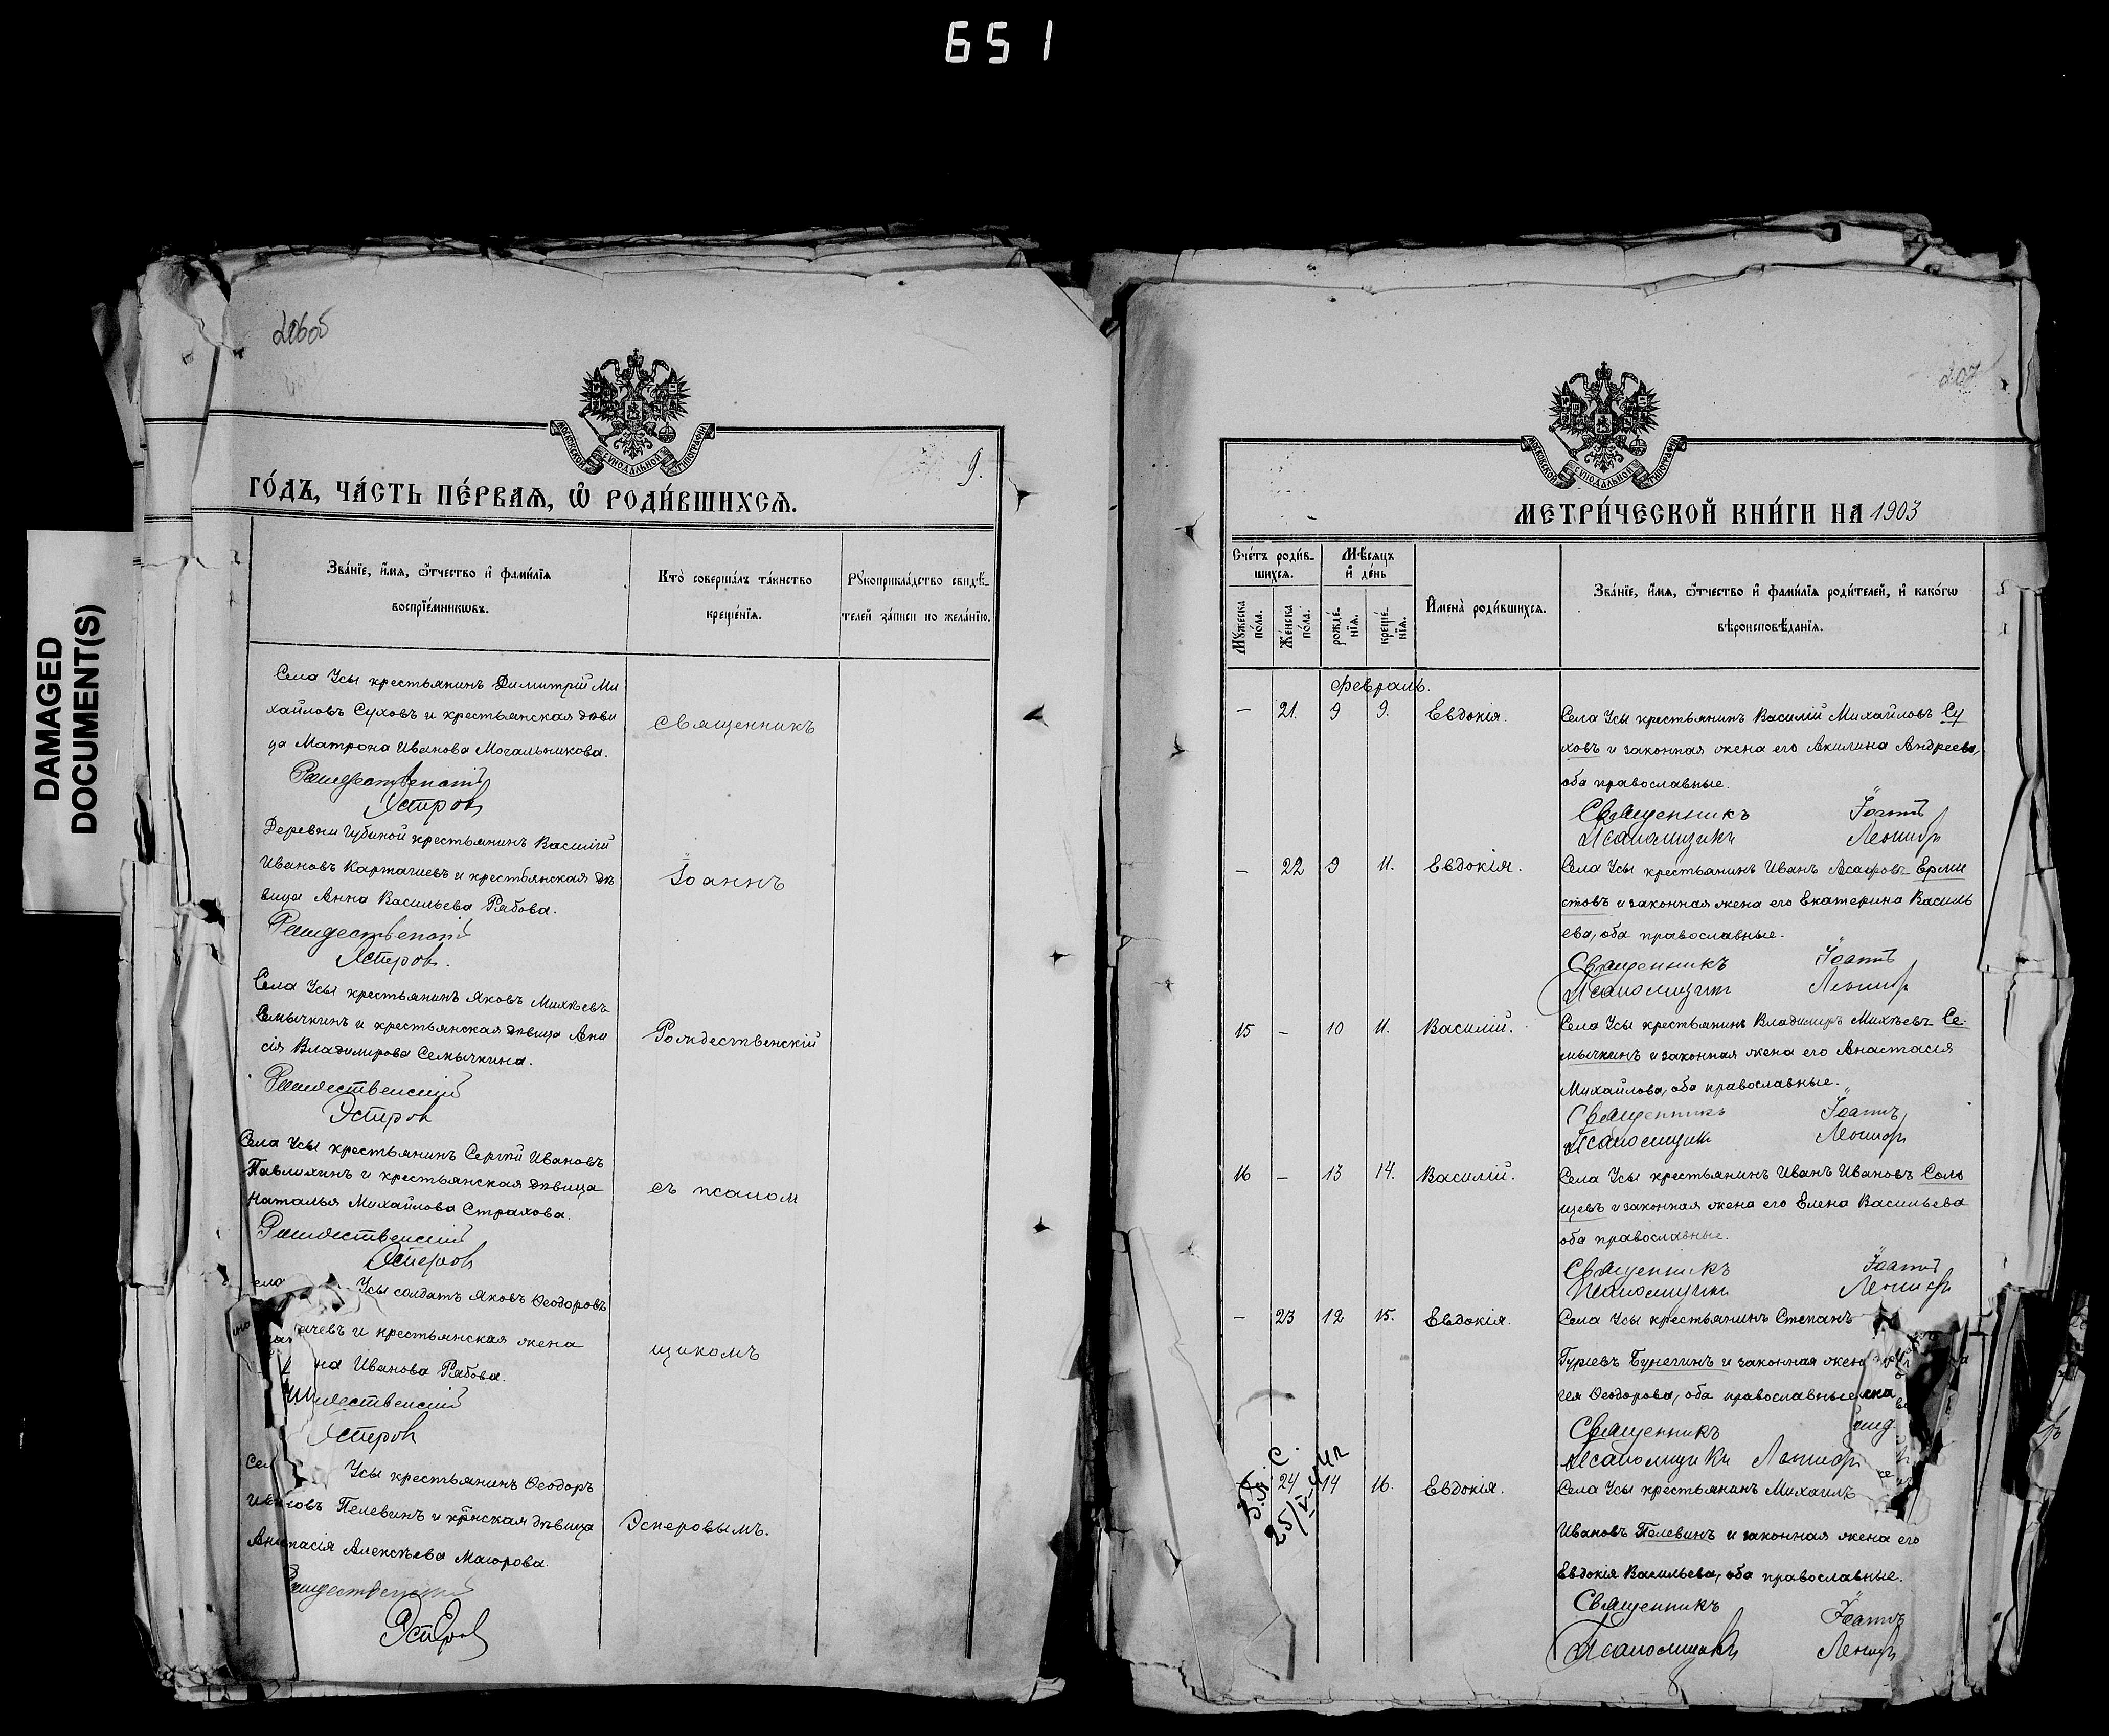 651
DAMAGED
DOCUMENT(S)
206об
МОСКОВСКОЙ СУНОДАЛЬНОЙ ТИПОГРАФІИ
9.
ГО́ДЪ, ЧА́СТЬ ПЕ́РВАѦ, Ѡ҆ РОДИ́ВШИХСѦ.
Зва́нїе, и҆́мѧ, ѻ҆́тчество и҆ фами́лїѧ
воспрїе́мникѡвъ.
Кто̀ соверша́лъ та́инство
креще́нїѧ.
Рꙋкоприкла́дство свидѣ́-
телей за́писи по жела́нїю.
Села Усы крестьянинъ Димитрій Ми
хайловъ Суховъ и крестьянская дѣви
ца Матрона Иванова Мочальникова.
священникъ
Рождественскій
Эсперовъ
Деревни Губиной крестьянинъ Василій
Ивановъ Карташевъ и крестьянская дѣ
вица Анна Васильева Рябова.
Іоаннъ
Рождественскій
Эсперовъ.
Села Усы крестьянинъ Яковъ Михѣевъ
Семычкинъ и крестьянская дѣвица Ани
сія Владимірова Семычкина.
Рождественскій
Рождественскій
Эсперовъ
Села Усы крестьянинъ Сергѣй Ивановъ
Павлихинъ и крестьянская дѣвица
Наталья Михайлова Страхова.
съ псалом
Рождественскій
Эсперовъ
Усы солдатъ Яковъ Ѳеодоровъ
и крестьянская жена
Иванова Рябова.
щикомъ
Эсперовъ
Усы крестьянинъ Ѳеодоръ
Ивановъ Пелевинъ и кр̃нская дѣвица
Анастасія Алексѣева Маіорова.
Эсперовымъ.
Рождественскій
Эсперовъ
207
МОСКОВСКОЙ СУНОДАЛЬНОЙ ТИПОГРАФІИ
МЕТРИ́ЧЕСКОЙ КНИ́ГИ НА 1903
Сче́тъ роди́в-
шихсѧ.
Мꙋ́жеска
по́ла.
Же́нска
по́ла.
Мѣ́сѧцъ
и҆ де́нь
рожде́-
нїѧ.
креще́-
нїѧ.
И҆мена̀ роди́вшихсѧ.
Зва́нїе, и҆́мѧ, ѻ҆́тчество и҆ фами́лїѧ роди́телей, и҆ како́гѡ
вѣроисповѣ́данїѧ.
Февраль.
– 21. 9 9. Евдокія. Села Усы крестьянинъ Василій Михайловъ Су
ховъ и законная жена его Акилина Андреева,
оба православные.
Священникъ Іоаннъ
Псаломщикъ Леонидъ
– 22 9 11. Евдокія. Села Усы крестьянинъ Иванъ Асафовъ Ерми
стовъ и законная жена его Екатерина Василь
ева, оба православные.
Священникъ Іоаннъ
Псаломщикъ Леонидъ
15 – 10 11. Василій. Села Усы крестьянинъ Владиміръ Михѣевъ Се-
мычкинъ и законная жена его Анастасія
Михайлова, оба православные.
Священникъ Іоаннъ
Псаломщикъ Леонидъ
16 – 13 14. Василій. Села Усы крестьянинъ Иванъ Ивановъ Соло
щевъ и законная жена его Елена Васильева
оба православные.
Священникъ Іоаннъ
Псаломщикъ Леонидъ
– 23 12 15. Евдокія. Села Усы крестьянинъ Степанъ
Гуріевъ Бунегинъ и законная жена
гея Ѳеодорова, оба православные
Священникъ
Псаломщикъ Леонидъ
24 14 16. Евдокія. Села Усы крестьянинъ Михаилъ
Ивановъ Пелевинъ и законная жена его
Евдокія Васильева, оба православные.
Священникъ Іоаннъ
Псаломщикъ Леонидъ